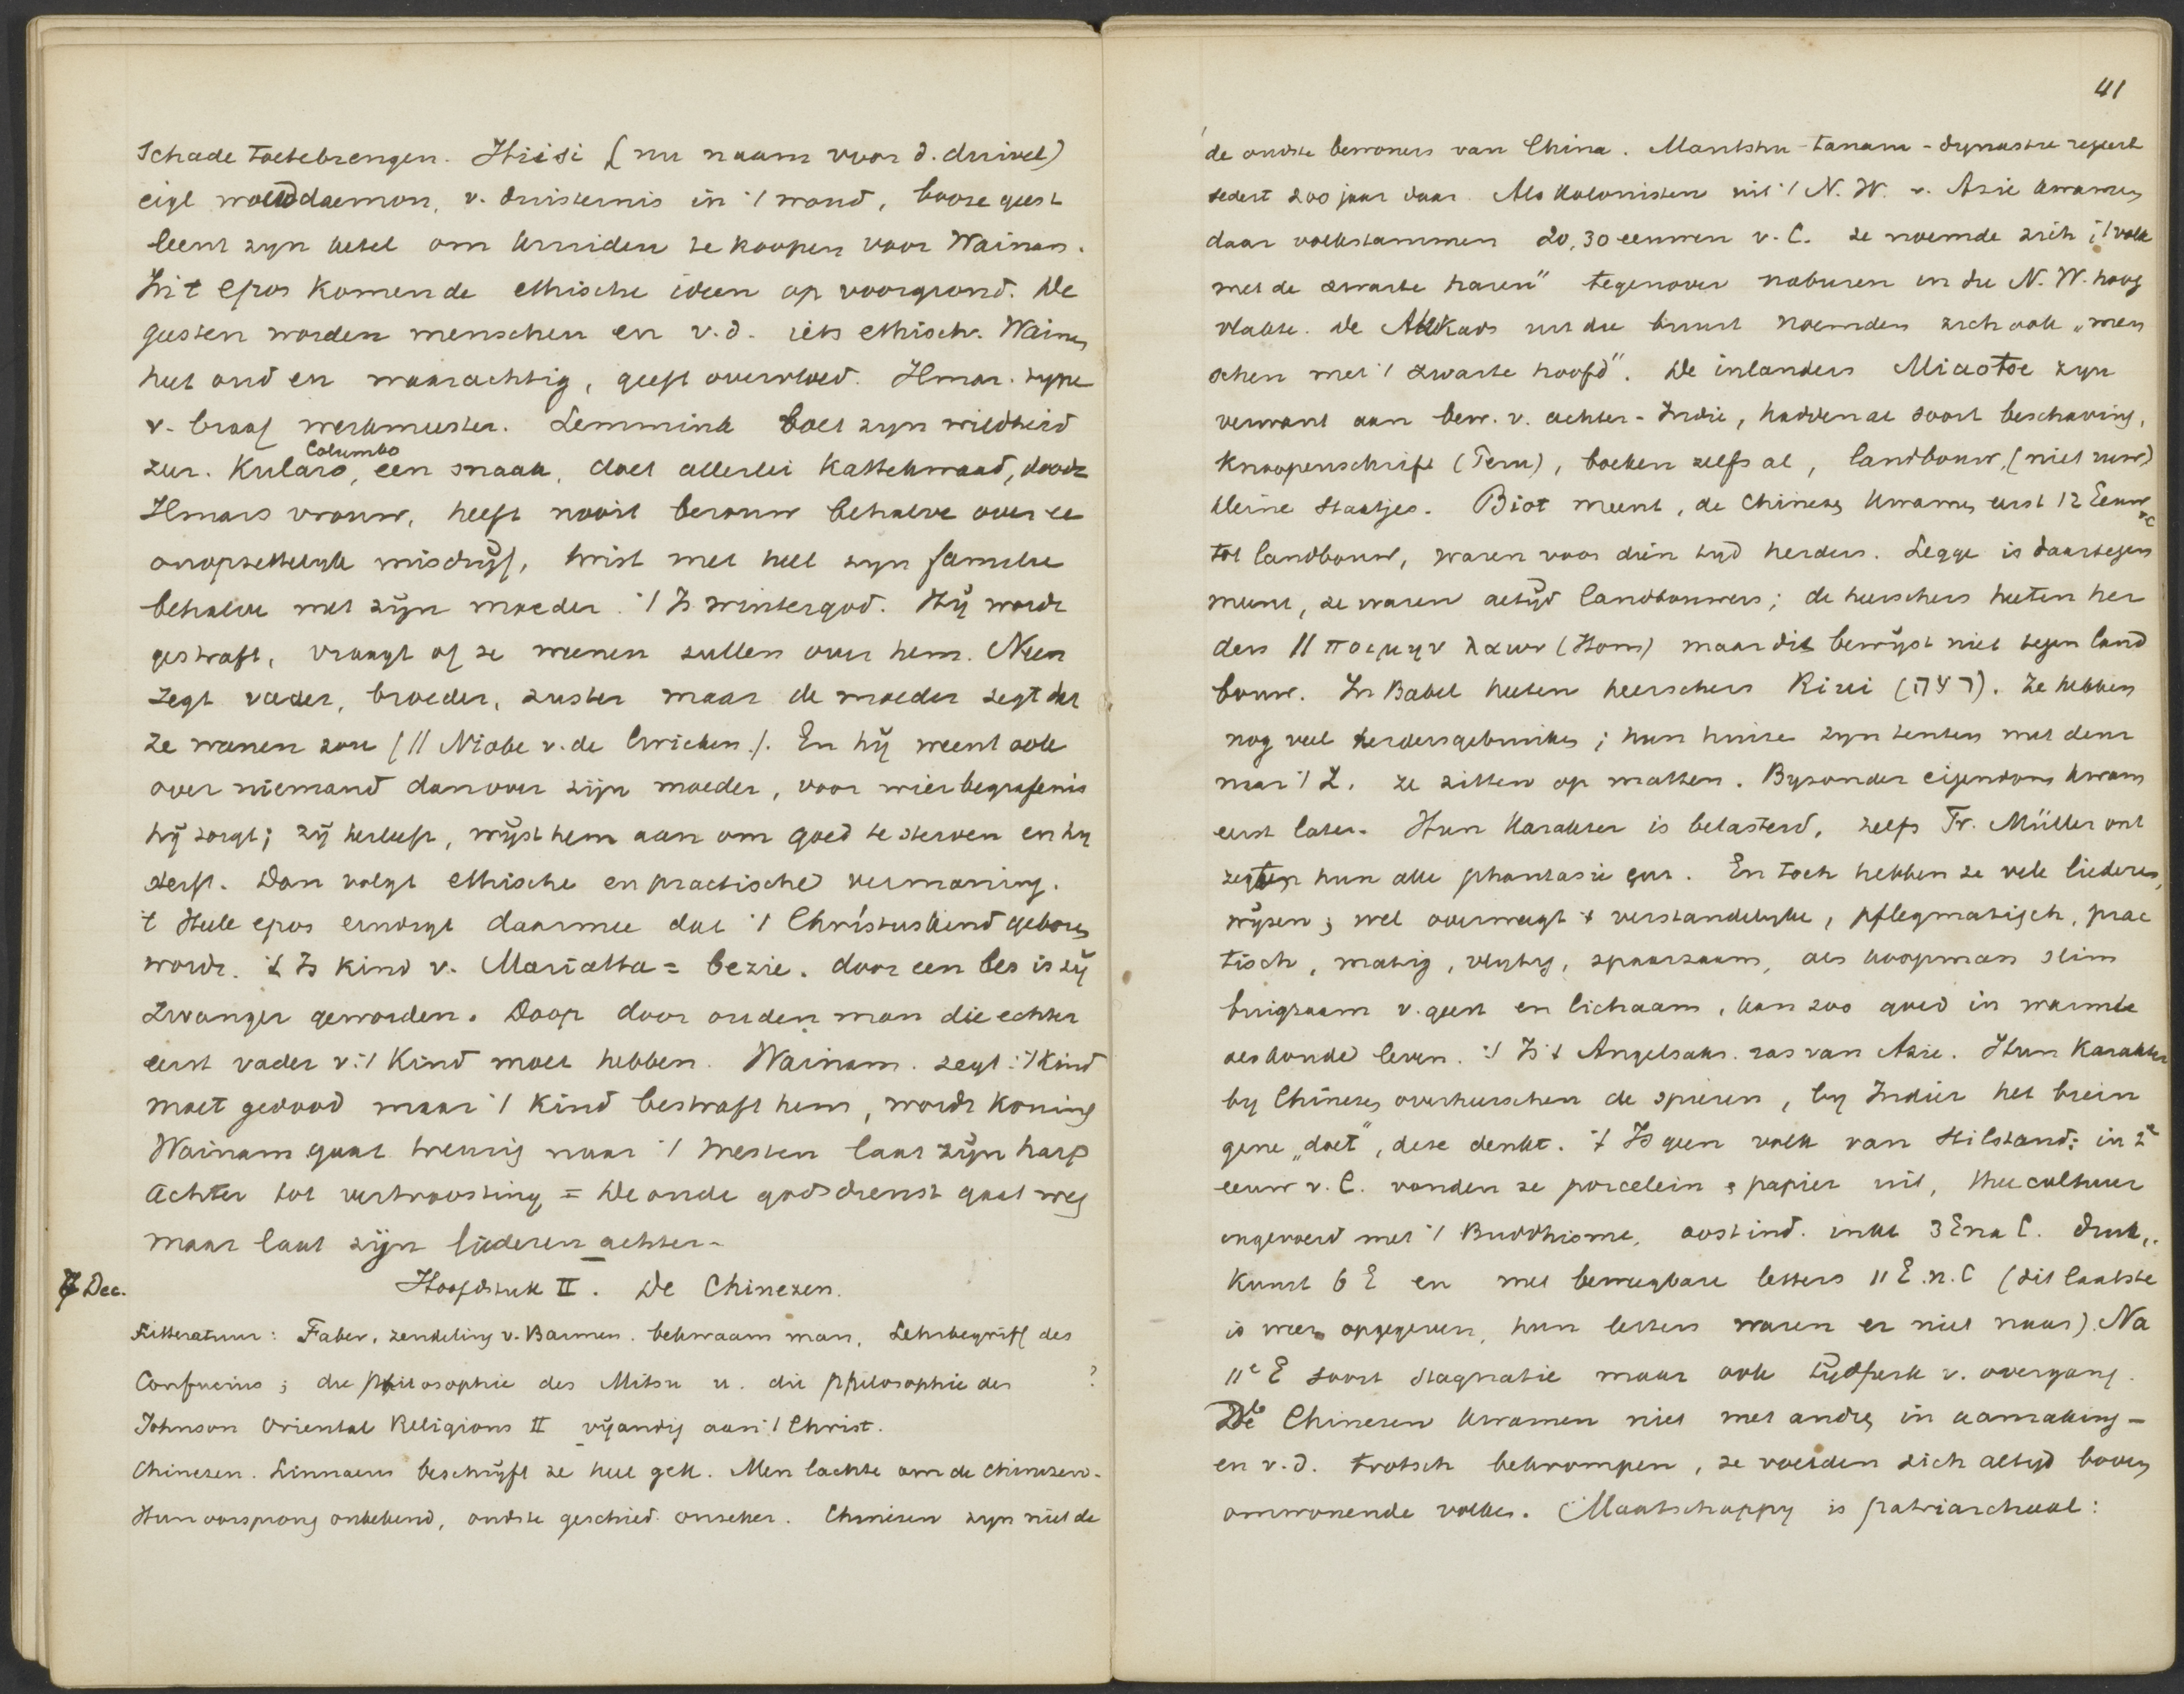 schade toetebrengen. Hiisi (nu naam voor d. duivel)
eigl wouddaemon, v. duisternis in 't woud, booze geest
leent zyn ketel om kruiden te koopen voor Wainam.
In 't epos komen de ethische ideen op voorgrond. De
geesten worden menschen en v.d. iets ethisch. Wainam
heet oud en waarachtig, geeft overvloed. Ilmar. type
v. braaf werkmeester. Lemmink boet zyn wildheid
Columbo
zur. Kulavo, een snaak, doet allerlei kattekwaad, doodt
Ilmars vrouw, heeft nooit berouw behalve over ee
onopzettelyk misdryf, twist met heel zyn familie
behalve met zijn moeder. 't Is wintergod. Hij wordt
gestraft, vraagt of ze weenen zullen over hem. Neen
zegt vader, broeder, zuster maar de moeder zegt dat
ze weenen zou (// Niobe v. de Grieken). En hij weent ook
over niemand dan over zijn moeder, voor wier begrafenis
hij zorgt; zij herleeft, wijst hem aan om goed te sterven en hy
sterft. Dan volgt ethische en practische vermaning.
't Heele epos eindigt daarmee dat 't Christuskind geboren
wordt. 't Is kind v. Mariatta = bezie. door een bes is zij
zwanger geworden. Doop door ouden man die echter
eerst vader v. 't Kind moet hebben. Wainam. zegt: 't kind
moet gedood maar 't kind bestraft hem, wordt koning
Wainam gaat treurig naar 't Westen laat zijn harp
achter tot vertroosting = De oude godsdienst gaat weg
maar laat zijn liederen achter.
7 Dec. Hoofdstuk II. De Chinezen.
Litteratuur: Faber, zendeling v. Barmen. bekwaam man, Lehrbegriff des
Confucius; die philosophie des Mitsu u. die philosophie des ?
Johnson Oriental Religions II vijandig aan 't Christ.
Chinezen. Linnaeus beschrijft ze heel gek. Men lachte om de chinezen.
Hun oorsprong onbekend, oudste geschied. onzeker. Chinezen zyn niet de
41
de oudste bewoners van China. Mantshu-tanam-dynastie regeert
sedert 200 jaar daar. Als kolonisten uit 't N.W. v. Azie kwamen
daar volkstammen 20, 30 eeuwen v. C. ze noemde zich "'t volk
met de zwarte haren" tegenover naburen in die N.W. hoog
vlakte. De Akkads uit die buurt noemden zich ook „men
schen met 't zwarte hoofd". De inlanders Miaotse zyn
verwant aan bew. v. achter-Indie, hadden al soort beschaving,
knoopenschrift (Peru), boeken zelfs al, landbouw, (niet ruw)
kleine staatjes. Biot meent, de Chinezen kwamen eerst 12 Eeuw v C
tot landbouw, waren voor dien tyd herders. Legge is daartegen
meent, ze waren altijd landbouwers; de heerschers heeten her
ders // ποιμην λαων (Hom) maar dit bewijst niet tegen land
bouw. In Babel heeten heerschers Riri (רעה). Ze hebben
nog veel herdersgebruiken; hun huize zyn tenten met deur
naar 't Z. ze zitten op matten. Byzonder eigendom kwam
eerst later. Hun karakter is belasterd, zelfs Fr. Müller ont
zegt hun alle phantasie enz. En toch hebben ze vele liederen,
wijzen; wel overweegt 't verstandelyke, pflegmatisch, prac
tisch, matig, vlytig, spaarzaam, als koopman slim
buigzaam v. geest en lichaam, kan zoo goed in warmte
als koude leven. 't Is 't Angelsaks. ras van Azie. Hun karakter
by Chinezen overheerschen de spieren, by Indiër het brein
gene „doet", deze denkt. 't Is geen volk van stilstand: in 2e
eeuw v. C. vonden ze porcelein & papier uit, theecultuur
ingevoerd met 't Buddhisme, oostind. inkt 3 E na C. druk„
kunst 6 E en met beweegbare letters 11 E. n. C (dit laatste
is weer opgegeven, hun letters waren er niet naar). Na
11e E soort stagnatie maar ook tydperk v. overgang.
De Chinezen kwamen niet met andre in aanraking –
en v.d. trotsch bekrompen, ze voelden zich altyd boven
omwonende volken. Maatschappy is patriarchaal: